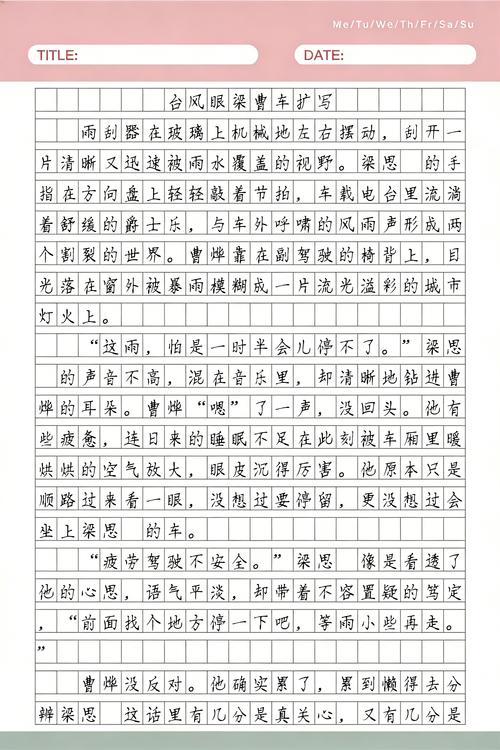 Me/Tu/We/Th/Fr/Sa/Su
TITLE: DATE:
台风眼梁曹车扩写
雨刮器在玻璃上机械地左右摆动，刮开一
片清晰又迅速被雨水覆盖的视野。梁思 的手
指在方向盘上轻轻敲着节拍，车载电台里流淌
着舒缓的爵士乐，与车外呼啸的风雨声形成两
个割裂的世界。曹烨靠在副驾驶的椅背上，目
光落在窗外被暴雨模糊成一片流光溢彩的城市
灯火上。
“这雨，怕是一时半会儿停不了。”梁思
的声音不高，混在音乐里，却清晰地钻进曹
烨的耳朵。曹烨“嗯”了一声，没回头。他有
些疲惫，连日来的睡眠不足在此刻被车厢里暖
烘烘的空气放大，眼皮沉得厉害。他原本只是
顺路过来看一眼，没想过要停留，更没想过会
坐上梁思 的车。
“疲劳驾驶不安全。”梁思 像是看透了
他的心思，语气平淡，却带着不容置疑的笃定
，“前面找个地方停一下吧，等雨小些再走。
”
曹烨没反对。他确实累了，累到懒得去分
辨梁思 这话里有几分是真关心，又有几分是